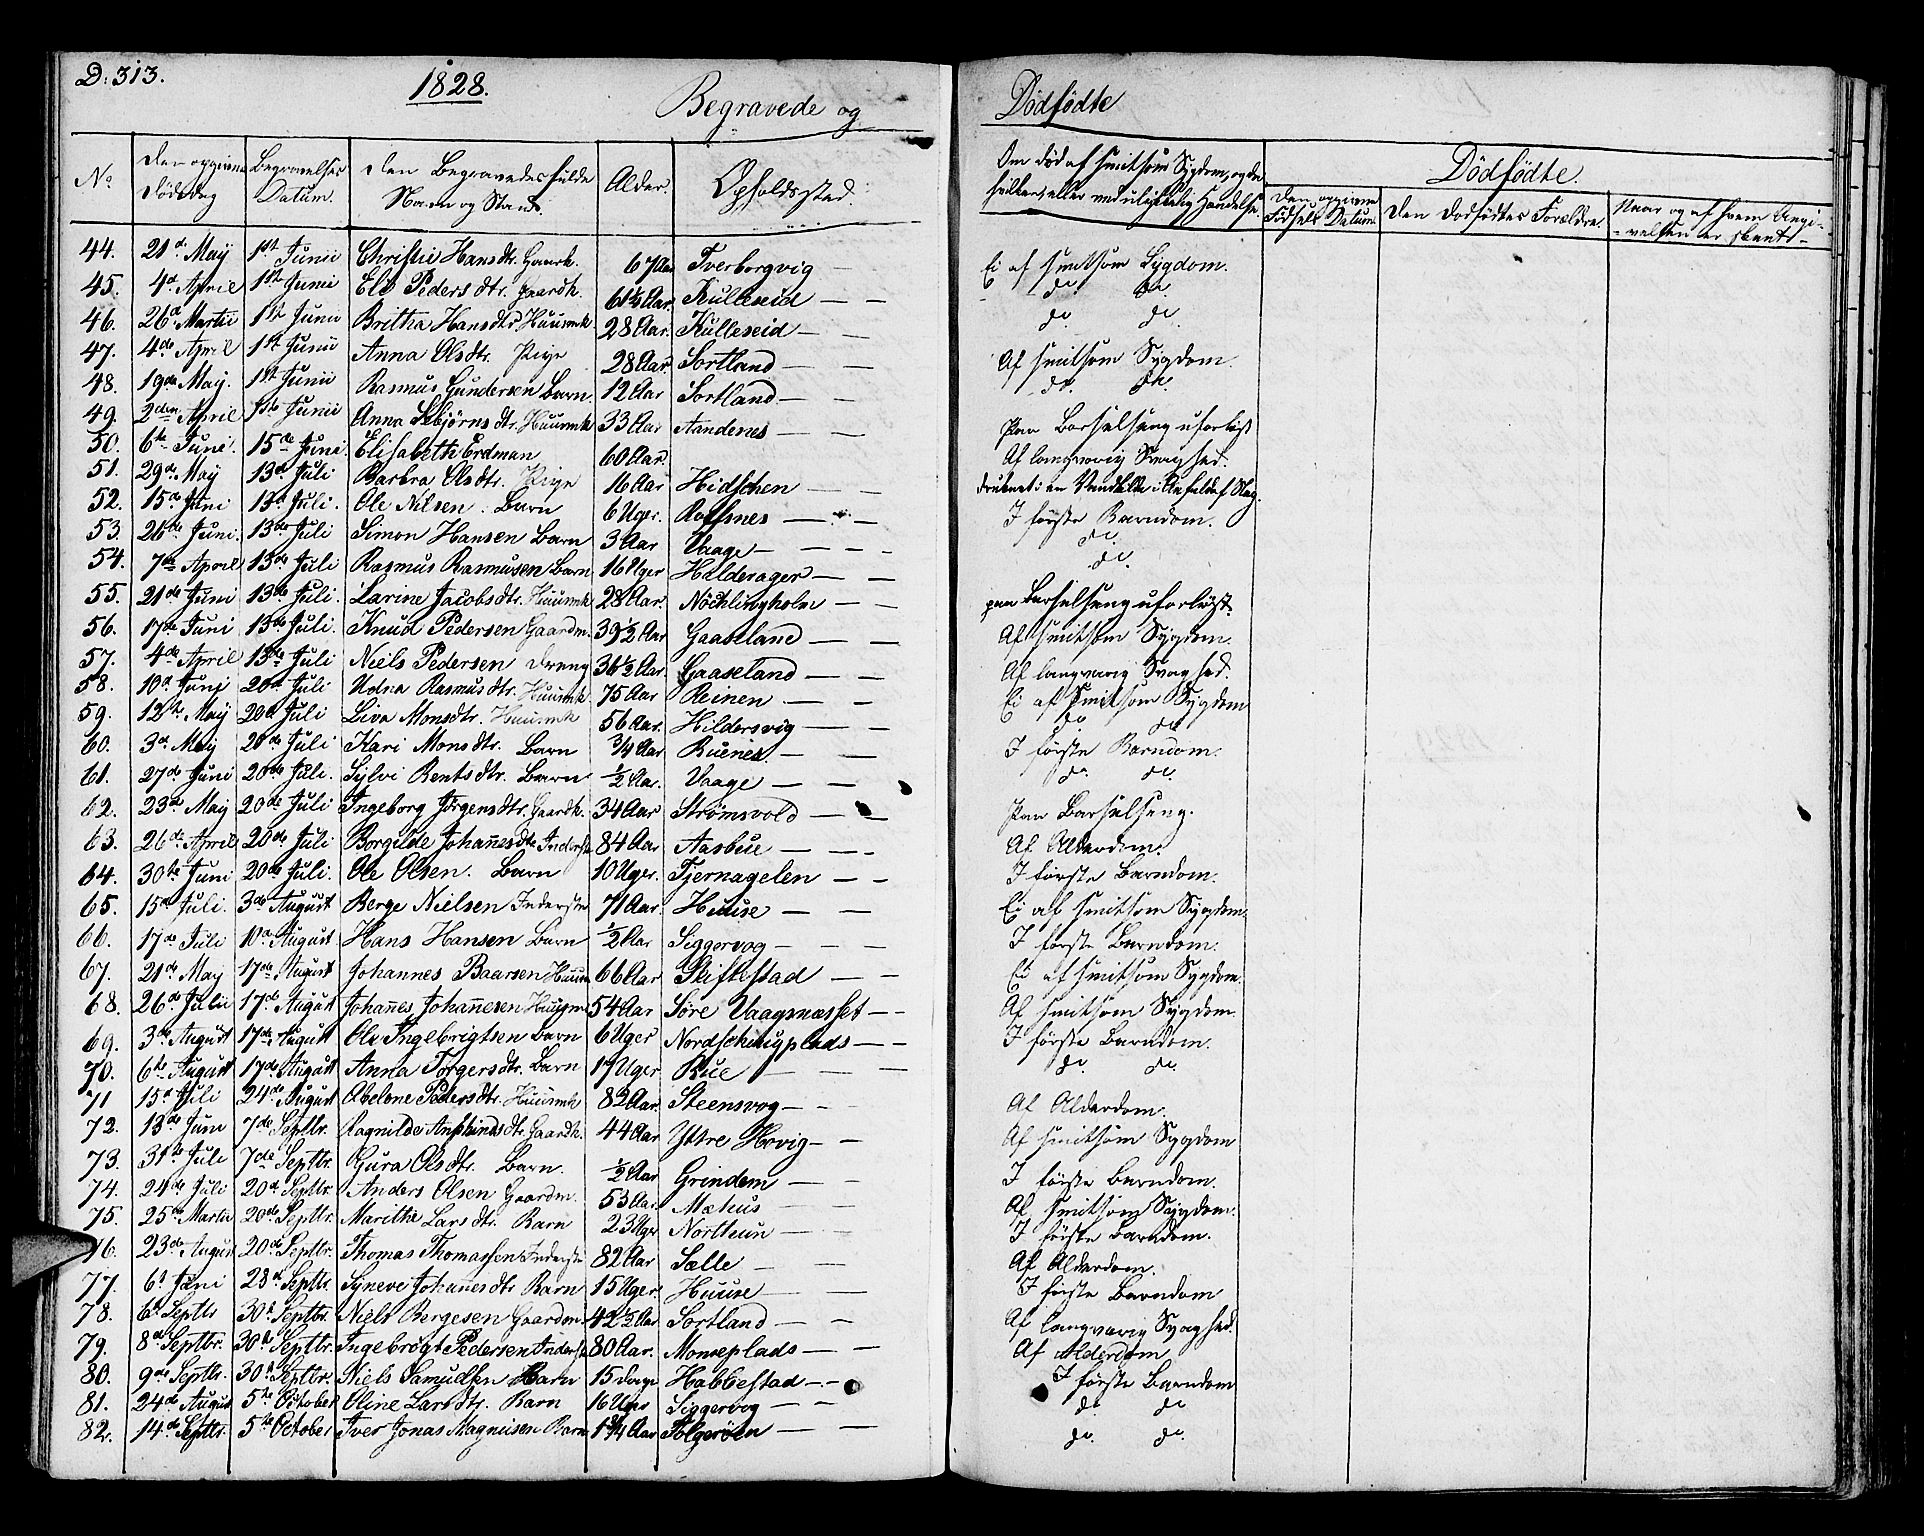 D. 313.
1828.
Begravede og Dödfödte
No
Den opgivne Dödsdag
Begravelses Datum.
Den Begravedes fulde Navn og Stand.
Alder.
Opholdssted.
Om död af smitsom Sygdom, og da hvilken, eller ved ulykkelig Hændelse.
Dödfödte.
Den opgivne Födsels Datum.
Den Dödfödtes Forældre.
Naar og af hvem Angivelsen er skeet.
44. 21d. Maij 1st Junii Christie Hansdtr. Gaardk. 67 Aar Tverborgvig — Ei af smitsom Sygdom.
45. 4d. April 1st Junii Els Pedersdtr. Gaardk. 61½ Aar Kulleseid — — do. do.
46. 26d Martii 1st Junii Britha Hansdtr. Huusmk. 28 Aar. Kulleseid — — do. do.
47. 4de April 1st Junii Anna Olsdtr. Pige 28 Aar Sortland — — Af smitsom Sygdom.
48. 19de Maij. 1st Junii Rasmus Gundersen Barn. 12 Aar Sortland — — do. do.
49. 2den April 1ste Junii Anna Asbjörnsdtr. Huusmk 33 Aar Aandenes — — Paa Barselseng uforløst
50. 6te Juni. 15de Junii. Elisabeth Erdman 60 Aar. Af langvarig Svaghed.
51. 29de Maij 13de Juli Barbra Olsdtr. Pige 16 Aar Hidschen — — druknet i en
52. 15de Juni 13d Juli. Ole Nilsen. Barn 6 Uger. Roffsnes — — I første Barndom.
53. 26de Juni. 13de Juli Simon Hansen Barn 3 Aar Vaage — — — do.
54. 7de April 13de Juli Rasmus Rasmusen Barn 16 Uger Hilderager — — do.
55. 21de Juni 13de Juli. Larine Jacobsdtr. Huusmk 28 Aar. Nöchlingholm — — paa Barselseng uforløst.
56. 17de Juni 13de Juli. Knud Pedersen Gaardm. 39½ Aar Gaaseland — — Af smitsom Sygdom.
57. 4de April 13de Juli Niels Pedersen Dreng 36½ Aar. Gaaseland — — Af langvarig Svaghed.
58. 10d Juni 20d Juli Udna Rasmusdtr. Huusmk. 75 Aar Reinen — — Ei af smitsom Sygdom
59. 12te Maij 20d Juli Liva Monsdtr. Huusmk 56 Aar. Hildersvig — — do do
60. 3de Maij 20de Juli Kari Monsdtr. Barn ¾ Aar Ruenes — — I første Barndom.
61. 27de Juni 20de Juli. Sylvi Bentsdtr. Barn ½ Aar. Vaage — — do. do.
62. 23d Maij 20de Juli Ingeborg Jörgensdtr. Gaardk. 34 Aar Strömsvold — — Paa Barselseng.
63. 26de April 20de Juli Borgilde Johañesdtr Inderste 84 Aar Aasbue — — Af Alderdom.
64. 30te Juni 20de Juli. Ole Olsen. Barn 10 Uger. Tjernagelen — — I første Barndom.
65. 15de Juli. 3de August Berge Nielsen Inderste 71 Aar. Huuse — — Ei af smitsom Sygdom.
66. 17de Juli 10d August Hans Hansen Barn ½ Aar Siggervog — — I første Barndom.
67. 21de Maij 17de August Johannes Baarsen Huusm 66 Aar Skiftestad — — Ei af smitsom Sygdom.
68. 26de Julii 17d. August Johañes Johañesen Huusm 54 Aar Söre Vaagsnæsset — — Af smitsom Sygdom.
69. 3de August 17de August Ole Ingebrigtsen Barn 6 Uger Nordschougplads — — I første Barndom.
70. 6te August 17de August Anna Torgersdtr. Barn 17 Uger Rue — — — do. do.
71 15d Juli 24de August Abelone Pedersdtr. Huusmk 82 Aar. Steensvog — — Af Alderdom.
72. 13de Juni 7de Septbr. Ragnilde Amfhindsdtr. Gaardk. 44 Aar Ystre Hovig — — Af smitsom Sygdom
73. 31te Juli 7de Septbr. Gura Olsdtr. Barn. ½ Aar Grindem — — I første Barndom.
74. 24de Juli 20d. Septbr. Anders Olsen Gaardm. 53 Aar. Mæhus — — Af smitsom Sygdom.
75. 25de Martii 20de Septbr. Maritha Larsdtr. Barn 23 Uger Northuun — — I første Barndom.
76. 23de August 20de Septbr. Thomas Thomassen Inderste 82 Aar Salle — — Af Alderdom.
77. 6t Juni 28d Septbr. Syneve Johañesdtr Barn 15 Uger. Huuse — — I første Barndom
78. 6t Septbr 30te Septbr. Niels Bergesen Gaardm. 42½ Aar Sortland — — Af langvarig Svaghed.
79. 8de Septbr. 30te Septbr. Ingebrögt Pedersen Inderste 80 Aar. Monseplads — — Af Alderdom
80. 9de Septbr. 30te Septbr. Niels Samuelsen Barn 15 Dage Habbestad — — I første Barndom
81. 24de August 5te October Oline Larsdtr. Barn 16 Uger Siggervog — — do. do
82. 14de Septbr. 5te October Iver Jonas Magnusen Barn 1¾ Aar Folgeröen — — do. do.